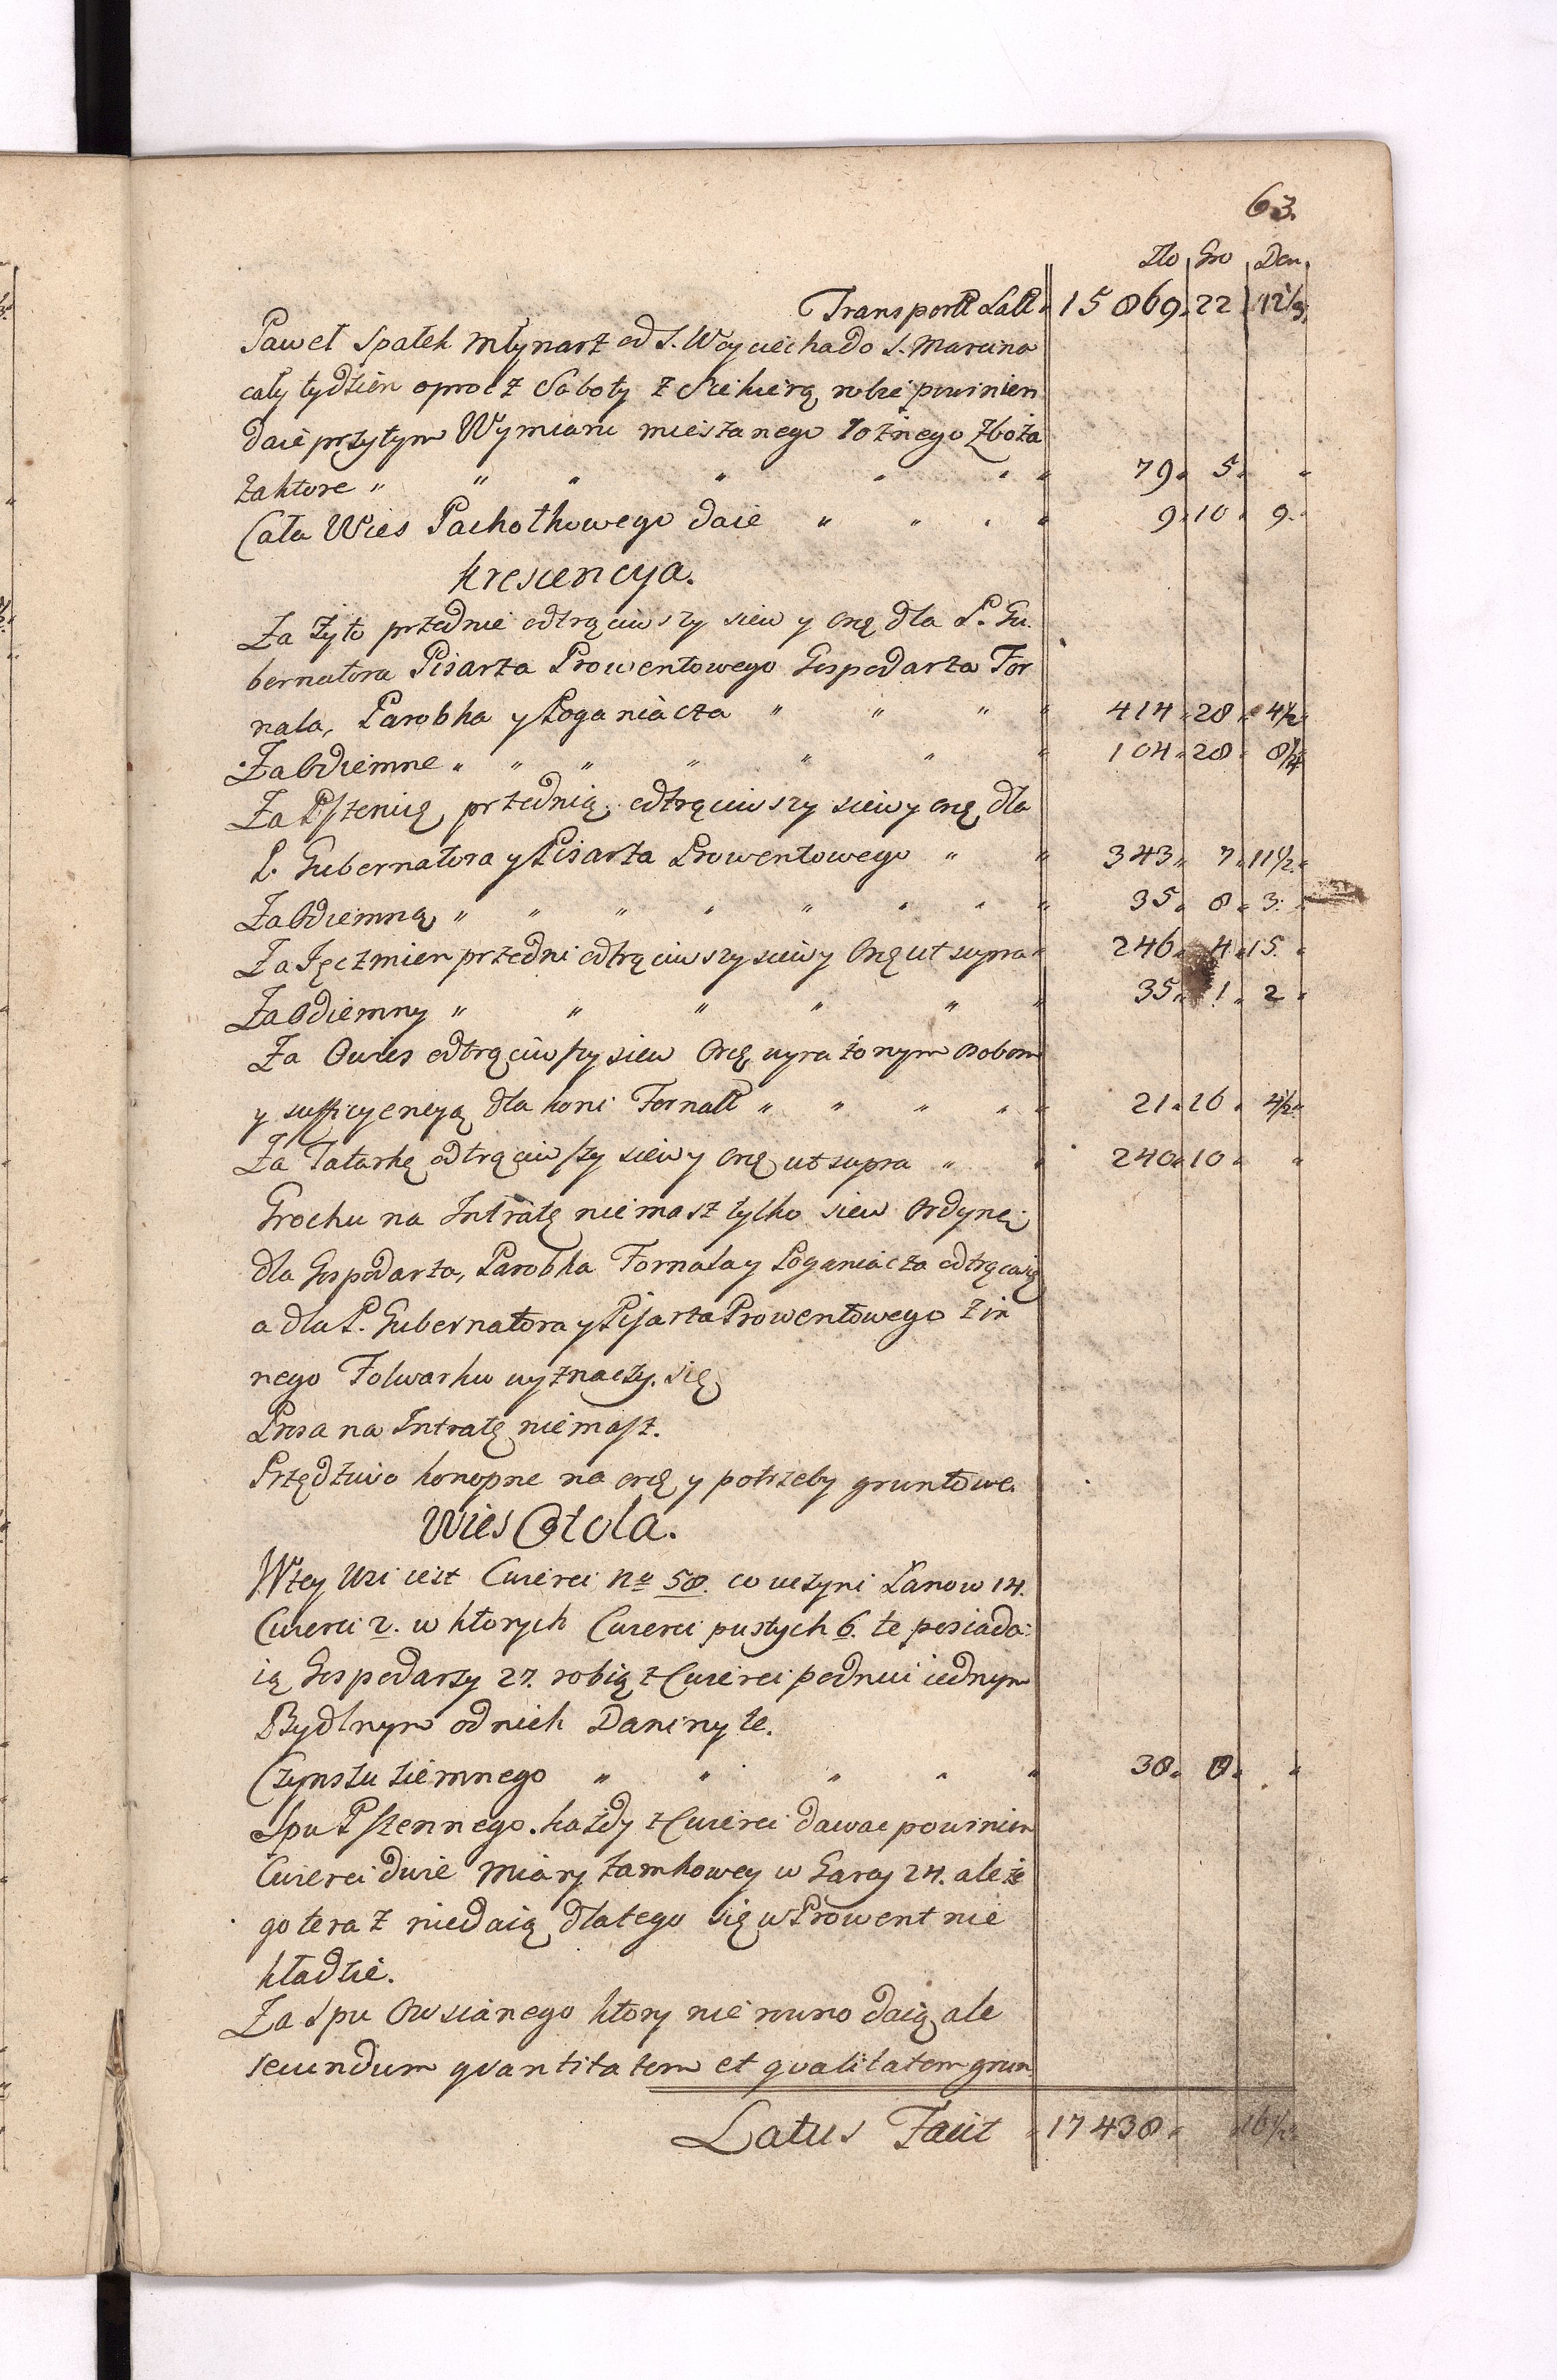 63.
Zło Gro Den.
Transportt Latt " 15869 " 22 " 12 1/3
Paweł Spałek Młynarz od S. Woyciecha do S. Marcina
cały tydzien oprocz Soboty z Siekierą robic powinien
daie przytym Wymiaru mieszanego rożnego Zboża
za ktore " " " " " " " 79 " 5 " "
Cała Wies Pachołkowego daie " " " " 9 " 10 " 9 "
Krescencya.
Za Zyto przednie odtrąciwszy siew y Orę dla P. Gu-
bernatora Pisarza Prowentowego Gospodarza For
nala, Parobka y Poganiacza " " " " 414 " 28 " 4 1/2
Za Odziemne " " " " " " " 104 " 28 " 8 1/4
Za Pszenicę przednią odtrąciwszy siew y Orę dla
P. Gubernatora y Pisarza Prowentowego " " 343 " 7 " 11 1/2
Za Odziemną " " " " " " " " 35 " 8 " 3 "
Za Jęczmien przedni odtrąciwszy siew y Orę ut supra " 246 " 4 " 15 "
Za Odziemny " " " " " " 35 " 1 " 2 "
Za Owies odtrąciwszy siew Orę wyrażonym osobom
y sufficyencyą dla koni Fornalt " " " " " 21 " 16 " 4 1/2
Za Tatarkę odtrąciwszy siew y Orę ut supra " " 240 " 10 " "
Grochu na Intratę nie masz tylko siew Ordyncę
dla Gospodarza, Parobka Fornala y Poganiacza odtrąca się
a dla P. Gubernatora y Pisarza Prowentowego z in
nego Folwarku wyznaczy się
Prosa na Intratę nie masz.
Przędziwo konopne na orę y potrzeby gruntowe.
Wies Otola.
W tey Wsi iest Cwierci No 58. co uczyni Łanow 14.
Cwierci 2. w ktorych Cwierci pustych 6. te posiada-
ią Gospodarzy 27. robią z Cwierci po dniu iednym
Bydlnym od nich Daniny te.
Czynszu ziemnego " " " " " 38 " 8 " "
Spu Pszennego każdy z Cwierci dawac powinien
Cwierci dwie Miary Zamkowey w Garcy 24. ale że
go teraz nie daią dla tego się w Prowent nie
kładzie.
Za Spu Owsianego ktory nie rowno daią ale
secundum quantitatem et qualitatem grun
Latus Facit " 17438 " " 16 1/2